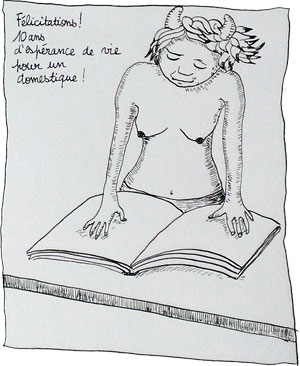 Félicitations!
10 ans
d'espérance de vie
pour un
domestique!